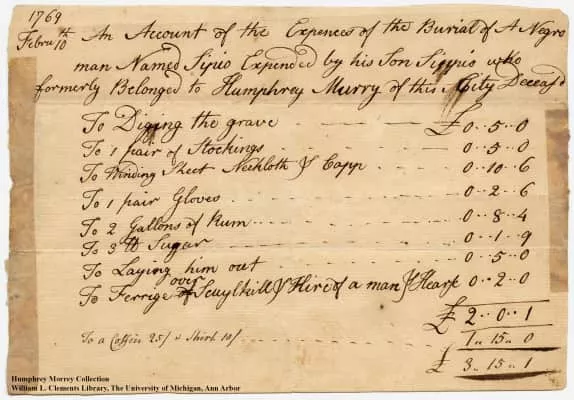 1769
Febru 10th An Account of the Expences of the Burial of A Negro
man Named Sipio Expended by his Son Sippio who
formerly Belonged to Humphrey Murry of this City Deceasd
To Diging the grave £ 0..5..0
To 1 pair of Stockings 0..5..0
To Winding Sheet Neckloth & Capp 0..10..6
To 1 pair Gloves 0..2..6
To 2 Gallons of Rum 0..8..4
To 3 lb Sugar 0..1..9
To Laying him out 0..5..0
To Ferrige over Scuylkill & Hire of a man & Hearse 0..2..0
£ 2..0..1
To a Coffin 25/ & Shirt 10/ 1..15..0
£ 3..15..1
Humphrey Morrey Collection
William L. Clements Library, The University of Michigan, Ann Arbor